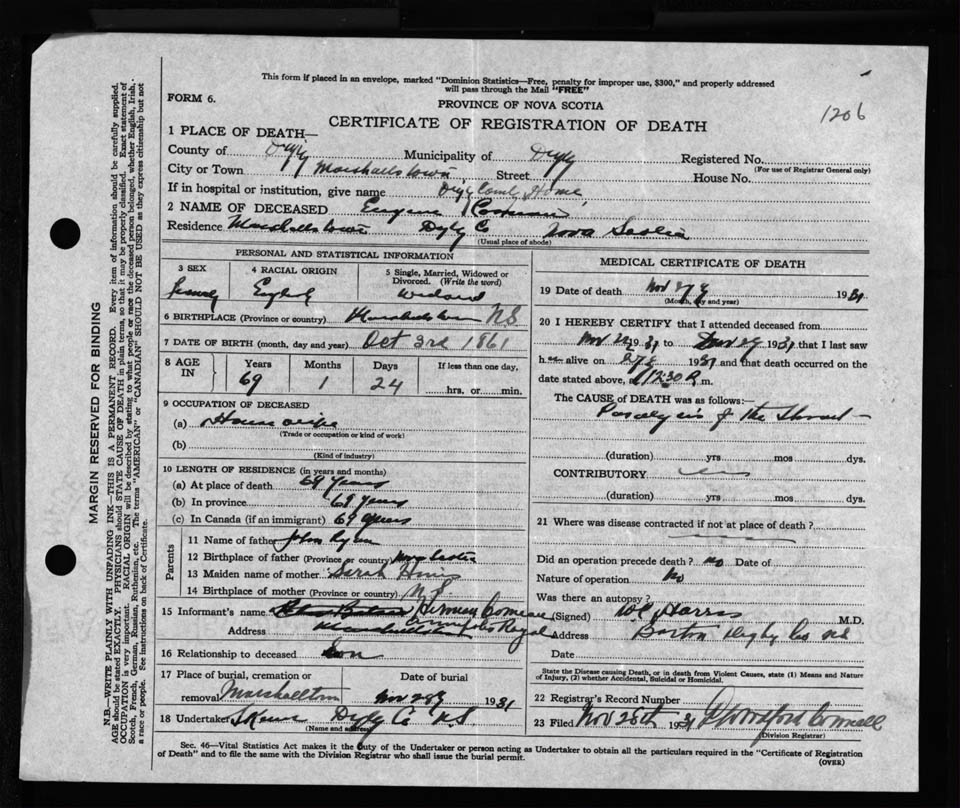 This form if placed in an envelope, marked "Dominion Statistics—Free, penalty for improper use, $300," and properly addressed
will pass through the Mail "FREE"
FORM 6.
PROVINCE OF NOVA SCOTIA
1206
CERTIFICATE OF REGISTRATION OF DEATH
1 PLACE OF DEATH—
County of Digby Municipality of Digby Registered No.
(For use of Registrar General only)
City or Town Marshalltown Street House No.
If in hospital or institution, give name Home
2 NAME OF DECEASED Eugenie
Residence Marshalltown Digby Co Nova Scotia
(Usual place of abode)
PERSONAL AND STATISTICAL INFORMATION
3 SEX 4 RACIAL ORIGIN 5 Single, Married, Widowed or Divorced. (Write the word)
English
6 BIRTHPLACE (Province or country) Marshalltown N.S.
7 DATE OF BIRTH (month, day and year) Oct 3rd 1861
8 AGE IN Years Months Days If less than one day,
69 1 24 hrs. or min.
9 OCCUPATION OF DECEASED
(a) House wife
(Trade or occupation or kind of work)
(b)
(Kind of industry)
10 LENGTH OF RESIDENCE (in years and months)
(a) At place of death 69 years
(b) In province 69 years
(c) In Canada (if an immigrant) 69 years
Parents
11 Name of father John
12 Birthplace of father (Province or country) Nova Scotia
13 Maiden name of mother Sarah
14 Birthplace of mother (Province or country) N.S.
15 Informant's name Comeau
Address Annapolis Royal
16 Relationship to deceased Son
17 Place of burial, cremation or Date of burial
removal Marshalltown Nov 28 1931
18 Undertaker Digby Co N.S
(Name and address)
MEDICAL CERTIFICATE OF DEATH
19 Date of death Nov 27 1931
(Month, day and year)
20 I HEREBY CERTIFY that I attended deceased from
Nov 1931 to 1931 that I last saw
h alive on 1931 and that death occurred on the
date stated above, at m.
The CAUSE of DEATH was as follows:—
Paralysis of the throat
(duration) yrs mos dys.
CONTRIBUTORY
(duration) yrs mos dys.
21 Where was disease contracted if not at place of death?
Did an operation precede death? no Date of
Nature of operation no
Was there an autopsy?
(Signed) Harris M.D.
Address Barton Digby Co NS
Date
State the Disease causing Death, or in death from Violent Causes, state (1) Means and Nature
of Injury, (2) whether Accidental, Suicidal or Homicidal.
22 Registrar's Record Number
23 Filed Nov 1931
(Division Registrar)
Sec. 46—Vital Statistics Act makes it the duty of the Undertaker or person acting as Undertaker to obtain all the particulars required in the "Certificate of Registration
of Death" and to file the same with the Division Registrar who shall issue the burial permit.
(OVER)
MARGIN RESERVED FOR BINDING
N.B.—WRITE PLAINLY WITH UNFADING INK—THIS IS A PERMANENT RECORD. Every item of information should be carefully supplied.
AGE should be stated EXACTLY. PHYSICIANS should STATE CAUSE OF DEATH in plain terms, so that it may be properly classified. Exact statement of
OCCUPATION is very important. RACIAL ORIGIN will be described by stating to what people or race the deceased person belonged, whether English, Irish,
Scotch, French, German, Russian, Ruthenian, etc. The terms "AMERICAN" or "CANADIAN" SHOULD NOT BE USED as they express citizenship but not
a race or people. See instructions on back of Certificate.